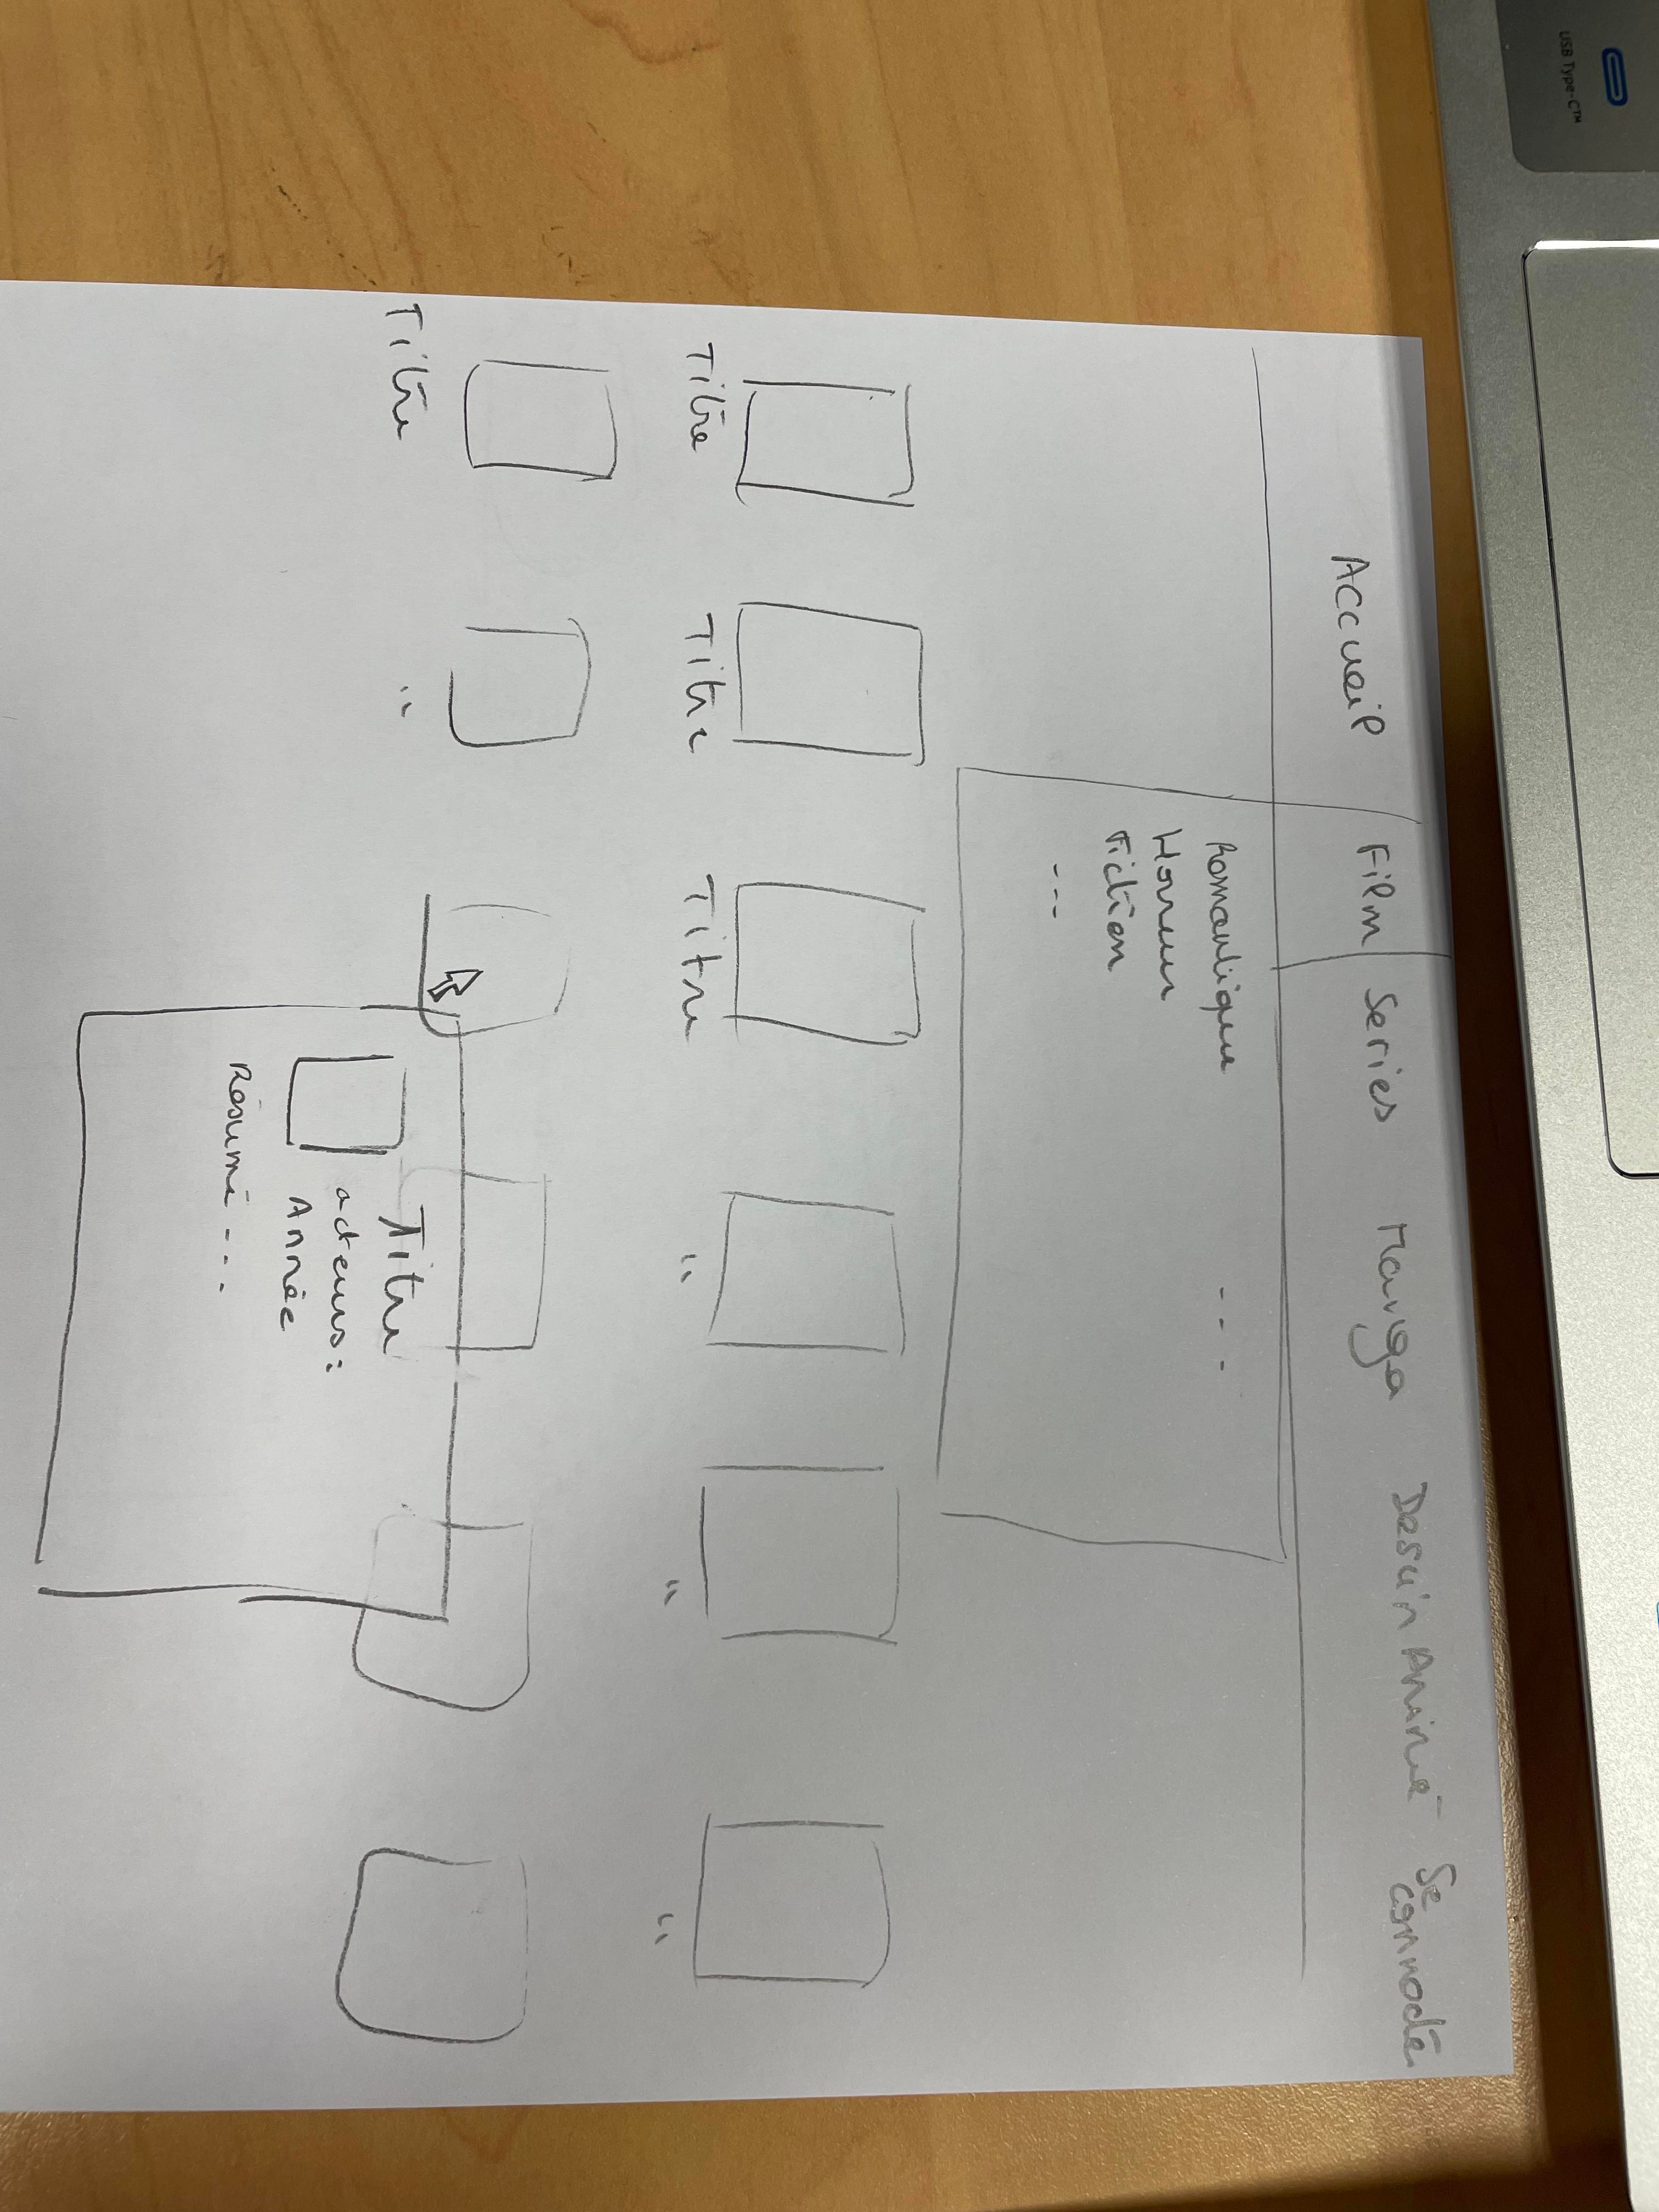 USB Type-C™
Accueil Film Series Manga Dessin Animé Se connecté
Romantique ...
Horreur
Fiction
...
Titre Titre Titre " " "
Titre "
Titre
acteurs :
Année
Résumé ...